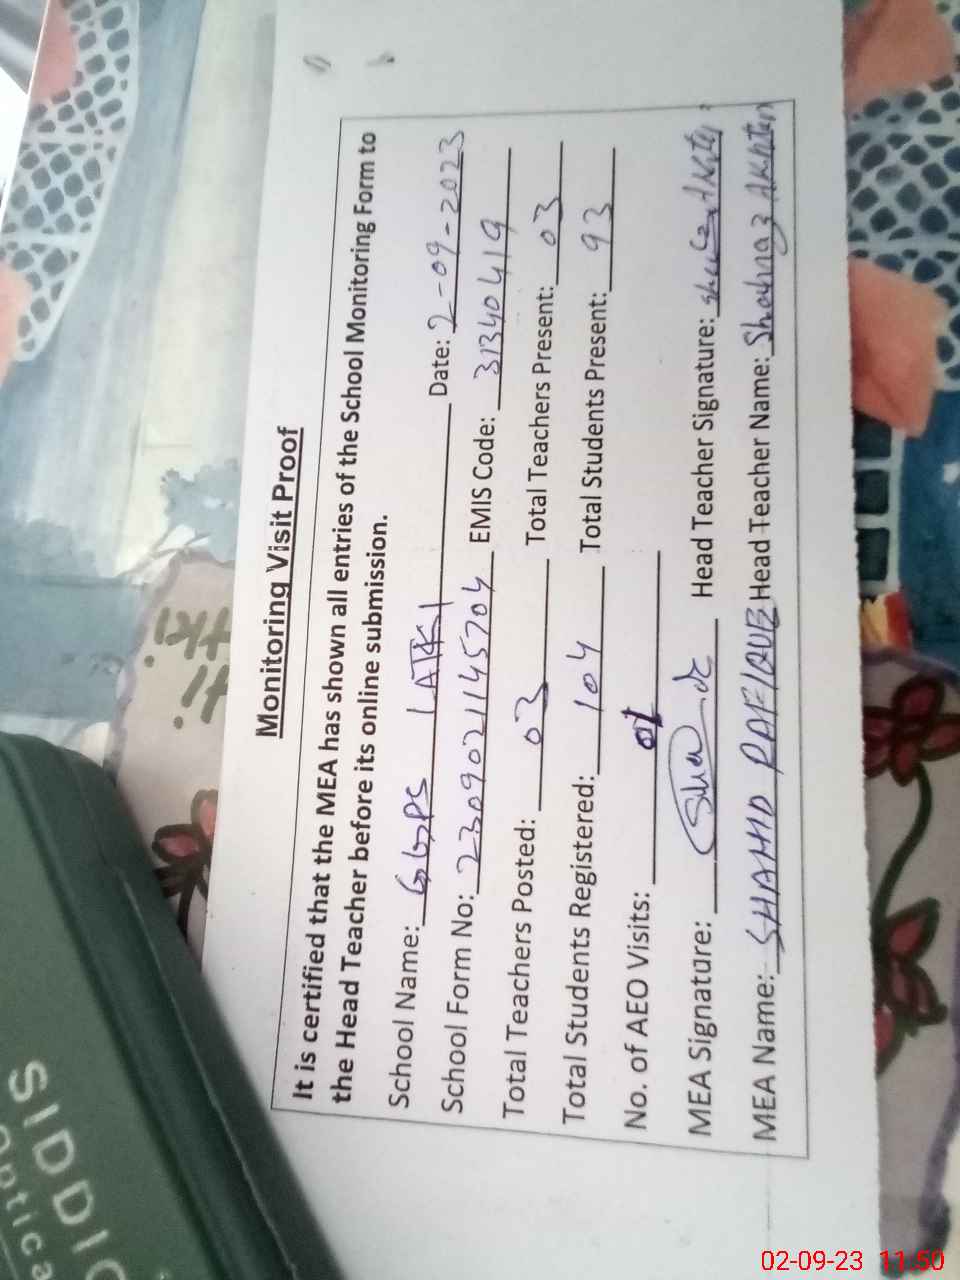 Monitoring Visit Proof
It is certified that the MEA has shown all entries of the School Monitoring Form to
the Head Teacher before its online submission.
School Name: GGPS LATKI Date: 2-09-2023
School Form No: 2309021145704 EMIS Code: 31340419
Total Teachers Posted: 03 Total Teachers Present: 03
Total Students Registered: 104 Total Students Present: 93
No. of AEO Visits: 01
MEA Signature: Head Teacher Signature:
MEA Name: SHAHID RAFIQUE Head Teacher Name: Shahnaz Akhter
SIDDIQ
Optica
02-09-23 11:50